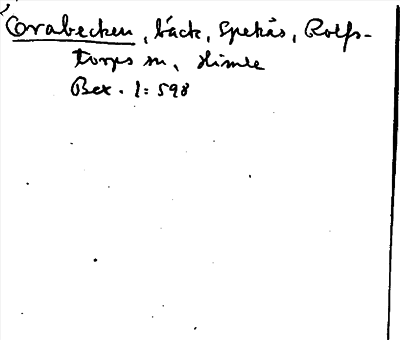 Orabecken, bäck, Spekås, Rolfs-
torps sn, Himle
Bex. 1:598